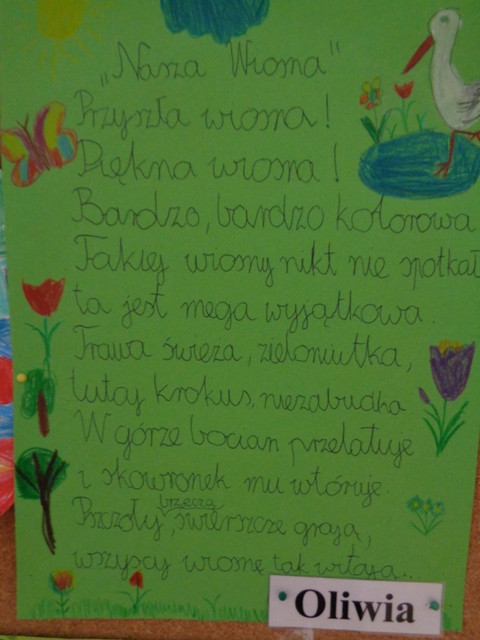 „Nasza Wiosna"
Przyszła wiosna!
Piękna wiosna!
Bardzo, bardzo kolorowa
Takiej wiosny nikt nie spotkał
ta jest mega wyjątkowa.
Trawa świeża, zieloniutka,
tutaj krokus, niezabudka
W górze bocian przelatuje
i skowronek mu wtóruje.
brzęczą
Pszczoły, świerszcze grają,
wszyscy wiosnę tak witają...
Oliwia